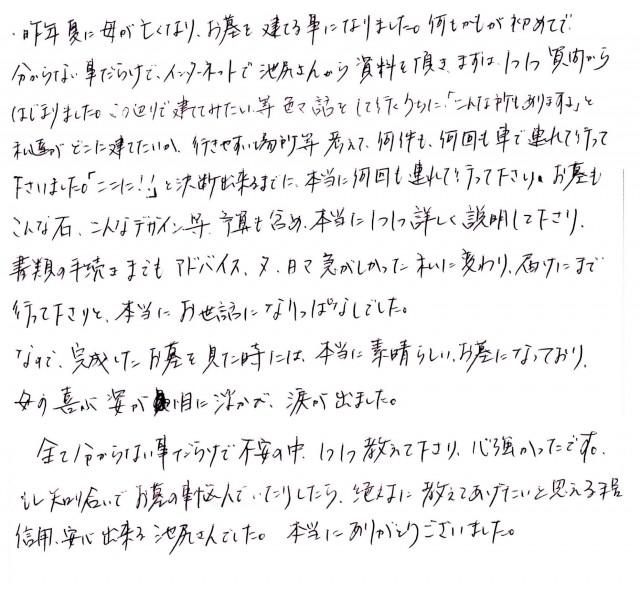 ・昨年夏に母が亡くなり、お墓を建てる事になりました。何もかもが初めてで、
分からない事だらけで、インターネットで池尻さんから資料を頂き、まずは、1つ1つ質問から
はじまりました。この辺りで建てみたい等色々話をして行くうちに、「こんな所もありますよ」と
私達がどこに建てたいか、行きやすい場所等考えて、何件も、何回も車で連れて行って
下さいました。「ここに!!」と決断出来るまでに、本当に何回も連れて行って下さり。お墓も
こんな石、こんなデザイン等、予算も含め、本当に1つ1つ詳しく説明して下さり、
書類の手続きまでもアドバイス、又、日々急がしかった私に変わり、届けにまで
行って下さりと、本当にお世話になりっぱなしでした。
なので、完成したお墓を見た時には、本当に素晴らしいお墓になっており、
母の喜ぶ姿が目に浮かび、涙が出ました。
全て分からない事だらけで不安の中、1つ1つ教えて下さり、心強かったです。
もし知り合いでお墓の事で悩んでいたりしたら、絶対に教えてあげたいと思える程
信用、安心出来る池尻さんでした。本当にありがとうございました。